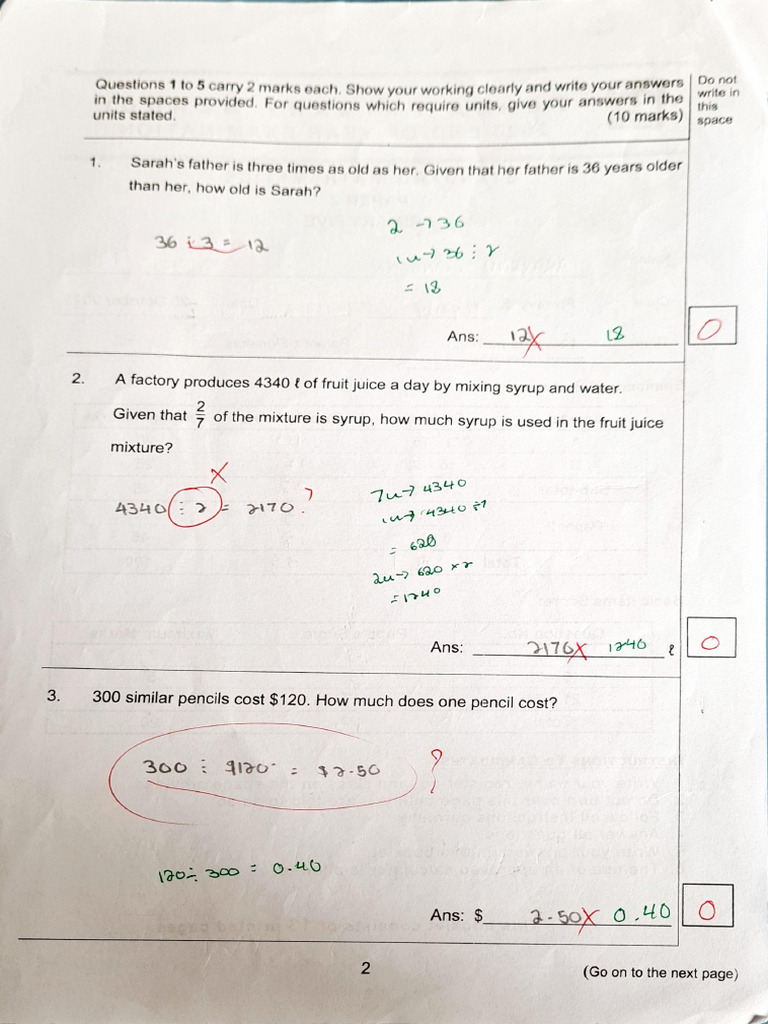 Questions 1 to 5 carry 2 marks each. Show your working clearly and write your answers
in the spaces provided. For questions which require units, give your answers in the
units stated. (10 marks)
Do not
write in
this
space
1. Sarah's father is three times as old as her. Given that her father is 36 years older
than her, how old is Sarah?
36 ÷ 3 = 12
2 → 36
1u → 36 ÷ 2
= 18
Ans: 12 X 18
0
2. A factory produces 4340 ℓ of fruit juice a day by mixing syrup and water.
Given that 2/7 of the mixture is syrup, how much syrup is used in the fruit juice
mixture?
X
4340 ÷ 2 = 2170 ?
7u → 4340
1u → 4340 ÷ 7
= 620
2u → 620 x 2
= 1240
Ans: 2170 X 1240 ℓ
0
3. 300 similar pencils cost $120. How much does one pencil cost?
300 ÷ $120 = $2.50 ?
120 ÷ 300 = 0.40
Ans: $ 2.50 X 0.40
0
2
(Go on to the next page)